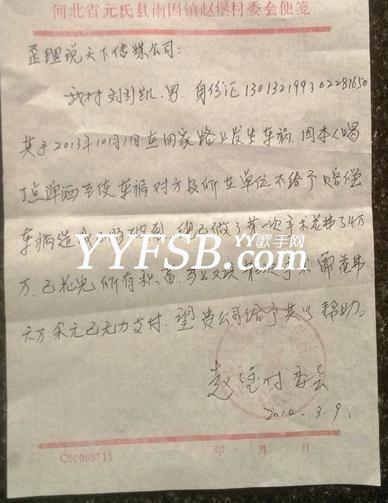 河北省元氏县南因镇赵堡村委会便笺
歪理说天下传媒公司:
我村刘 凯.男.身份证130132199302281650
其于2013年10月1日在回家路上发生车祸.因本人喝
了点啤酒至使车祸对方及所在单位不给予赔偿
车祸造成 现已做了第一次手术花费了4万
万.已花完所有积蓄. 次手术需花费
六万余元已无力支付.望贵公司给予其以帮助。
YYFSB.COM YY歌手网
赵堡村委会
2014.3.9.
C08060711 年 月 日